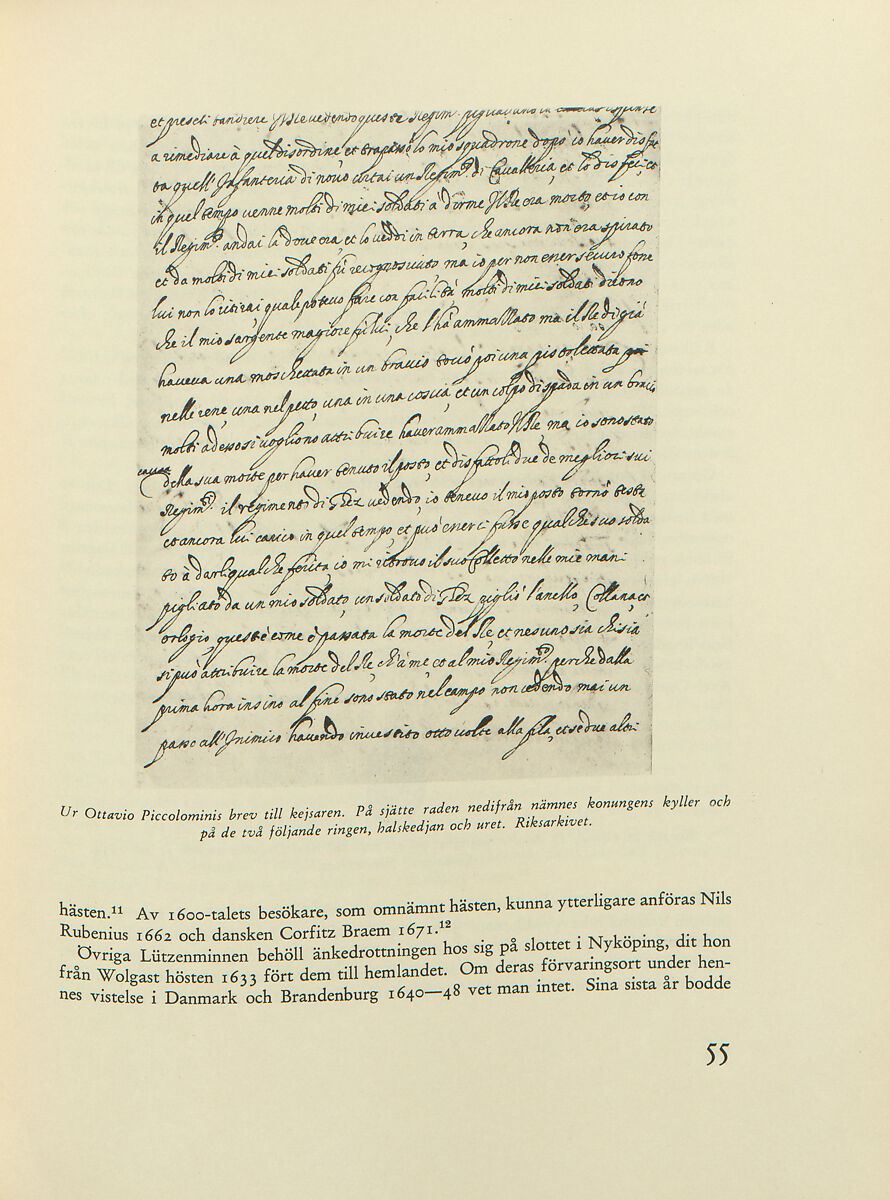 et preseli bandiere Il Re vedendo queste Regim. pigliai uno in
a rimediare à quel disordine et trapassò lo mio squadrone dopò io haver disfat
ta quell' Infanteria di novo urtai un Regim.to di Cavalleria, et lo disfeci, et
in quel tempo venne molti di miei soldati à dirme Il Re era morto, et io con
il Regim.to andai là dove era, et lo veddi in terra, che ancora non era spirato
et da molti di miei soldati fù recognosciuto ma io per non esser securo fosse
lui non lo ritirai, quale potevo fare con facilità, molti di miei soldati dicono
che il mio sargente magiore fù lui, che l'hà ammallato ma il Re di già
haveva una moschettata in un bracio toccò poi una pistolettata
nelle rene, una nel petto, una in una coscia, et un colpo di spada in un bracio
molti adesso si vogliono attribuire haver ammallato Il Re, ma io sono stato
causa
della sua morte per haver tenuto il posto, et disfattoli due de megliori sui
Regim.ti il regimento di Ghez vedendo, io tenevo il mio posto tornò
et ancora lui carico in quel tempo, et può esser ci fusse qualche suo solda
to à darli qualche ferita, io mi ritrovo il suo Colletto nelle mie mani
pigliato da un mio soldato, un soldato di Ghez pigliò l'anello, Collana, et
orlogio, quest'è come è passata la morte del Re, et nesuno sia chi sia
si può attribuire la morte del Re, ch'à me, et al mio Regim.to perche dalla
prima hora insino al fine sono stato nel campo non cedendo mai un
passo all'Inimico havendo investito otto volte alla fila, et se due altri
Ur Ottavio Piccolominis brev till kejsaren. På sjätte raden nedifrån nämnes konungens kyller och
på de två följande ringen, halskedjan och uret. Riksarkivet.
hästen.¹¹ Av 1600-talets besökare, som omnämnt hästen, kunna ytterligare anföras Nils
Rubenius 1662 och dansken Corfitz Braem 1671.¹²
Övriga Lützenminnen behöll änkedrottningen hos sig på slottet i Nyköping, dit hon
från Wolgast hösten 1633 fört dem till hemlandet. Om deras förvaringsort under hen-
nes vistelse i Danmark och Brandenburg 1640—48 vet man intet. Sina sista år bodde
55